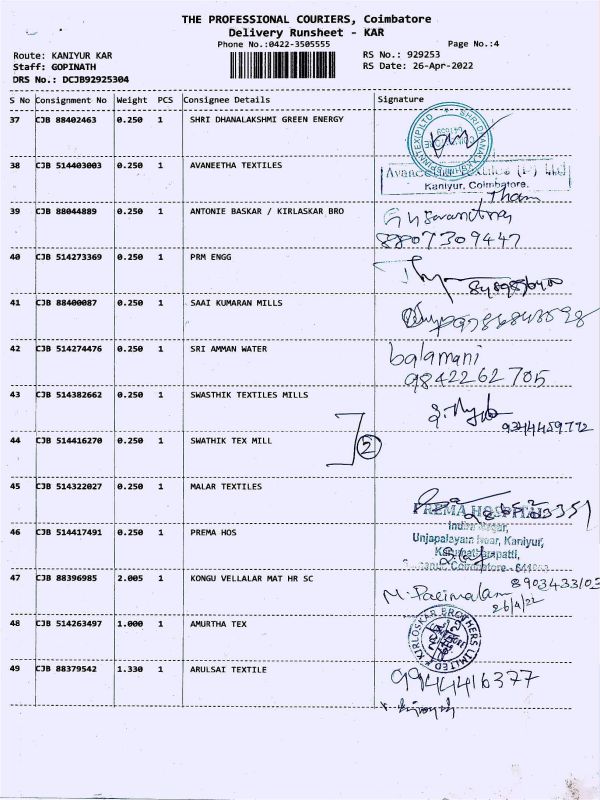 THE PROFESSIONAL COURIERS, Coimbatore
Delivery Runsheet - KAR
Phone No.:0422-3505555
Page No.:4
Route: KANIYUR KAR
RS No.: 929253
Staff: GOPINATH
RS Date: 26-Apr-2022
DRS No.: DCJB92925304
S No Consignment No Weight PCS Consignee Details Signature
37 CJB 88402463 0.250 1 SHRI DHANALAKSHMI GREEN ENERGY
38 CJB 514403003 0.250 1 AVANEETHA TEXTILES
Kaniyur, Coimbatore.
39 CJB 88044889 0.250 1 ANTONIE BASKAR / KIRLASKAR BRO
8807309447
40 CJB 514273369 0.250 1 PRM ENGG
41 CJB 88400087 0.250 1 SAAI KUMARAN MILLS
42 CJB 514274476 0.250 1 SRI AMMAN WATER
balamani
9842262705
43 CJB 514382662 0.250 1 SWASTHIK TEXTILES MILLS
9344459772
44 CJB 514416270 0.250 1 SWATHIK TEX MILL
2
45 CJB 514322027 0.250 1 MALAR TEXTILES
PREMA HOSPITAL
46 CJB 514417491 0.250 1 PREMA HOS
Unjapalayam Road, Kaniyur,
47 CJB 88396985 2.005 1 KONGU VELLALAR MAT HR SC
8903433103
M. Parimalam
26/4/22
48 CJB 514263497 1.000 1 AMURTHA TEX
KIRLOSKAR BROTHERS LIMITED
49 CJB 88379542 1.330 1 ARULSAI TEXTILE
9944416377